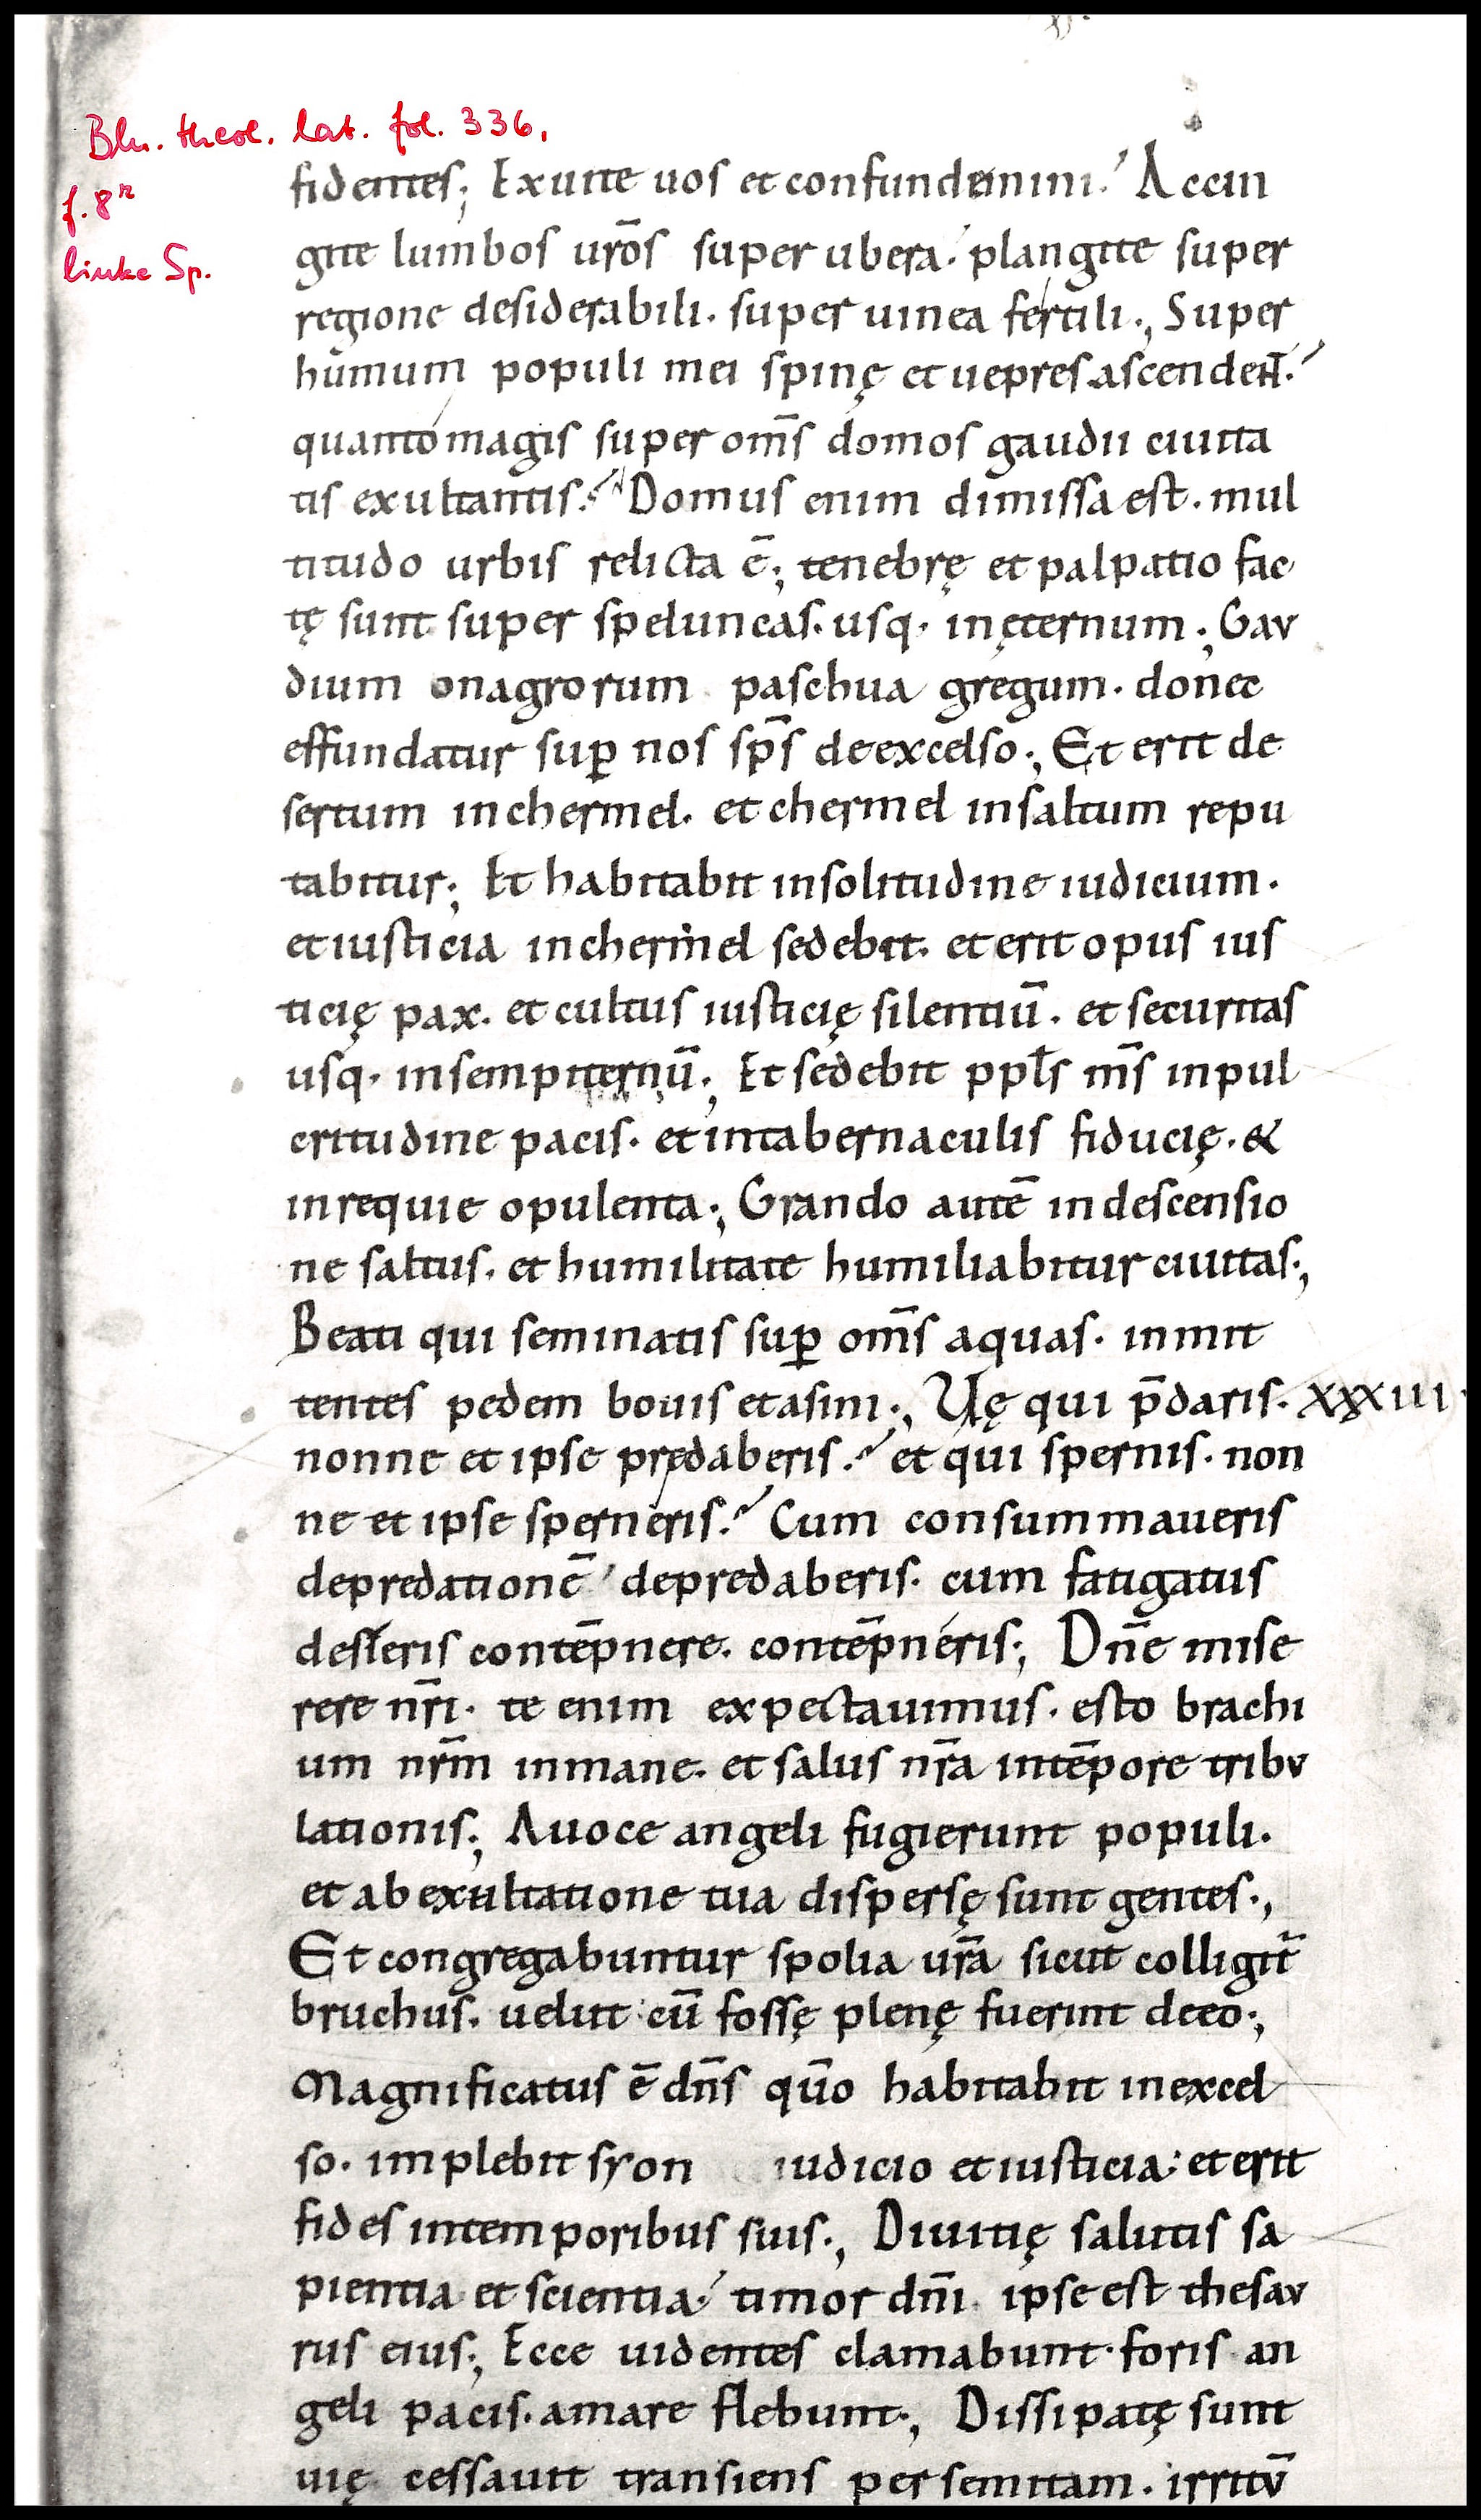 Bln. theol. lat. fol. 336,
f. 8r
linke Sp.
fidentes; Exuite uos et confundimini. Accin
gite lumbos ur̄os super ubera. plangite super
regione desiderabili. super uinea fertili., Super
humum populi mei spinę et uepres ascendent.
quanto magis super om̄s domos gaudii ciuita
tis exultantis. Domus enim dimissa est. mul
titudo urbis relicta ē; tenebrę et palpatio fac
tę sunt super speluncas. usq. in ęternum., Gav
dium onagrorum paschua gregum. donec
effundatur suꝑ nos sp̄s de excelso., Et erit de
sertum in chermel. et chermel in saltum repu
tabitur; Et habitabit in solitudine iudicium.
et iusticia in chermel sedebit. et erit opus ius
ticię pax. et cultus iusticię silentiū. et securitas
usq. in sempiternū., Et sedebit ppl̄s m̄s in pul
critudine pacis. et in tabernaculis fiducię. &
in requie opulenta., Grando autē in descensio
ne saltus. et humilitate humiliabitur ciuitas.,
Beati qui seminatis suꝑ om̄s aquas. inmit
tentes pedem bouis et asini., Uę qui p̄daris. XXXIII.
nonne et ipse prędaberis. et qui spernis. non
ne et ipse sperneris. Cum consummaueris
depredationē depredaberis. cum fatigatus
desieris contēpnere. contēpneris; Dn̄e mise
rere nr̄i. te enim expectauimus. esto brachi
um nr̄m in mane. et salus nr̄a in tēpore tribv
lationis., A uoce angeli fugierunt populi.
et ab exultatione tua dispersę sunt gentes.,
Et congregabuntur spolia ur̄a sicut colligit̄
bruchus. uelut cū fossę plenę fuerint de eo.,
Magnificatus ē dn̄s qūo habitabit in excel
so. implebit syon iudicio et iusticia. et erit
fides in temporibus suis., Diuitię salutis sa
pientia et scientia. timor dn̄i ipse est thesav
rus eius., Ecce uidentes clamabunt. foris an
geli pacis. amare flebunt., Dissipatę sunt
uię cessauit transiens per semitam. irritv̄